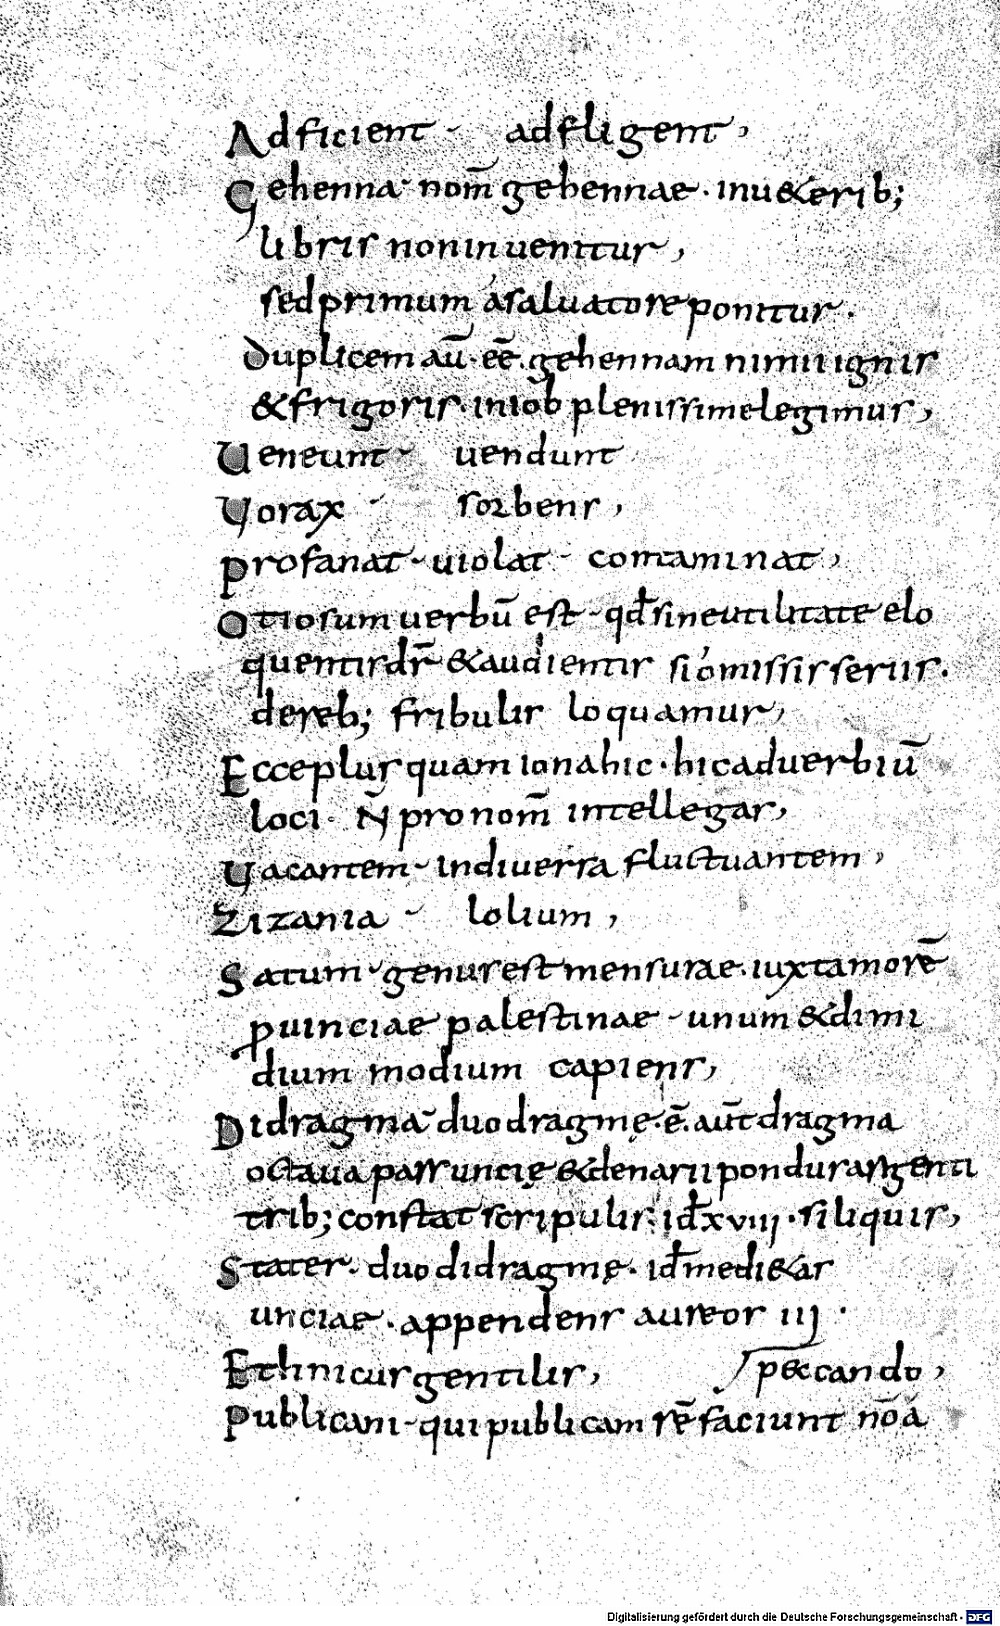 Adficient - adfligent,
Gehenna - nom̄ gehennae . inu&erib;
libris non inuenitur,
sed primum a saluatore ponitur.
Duplicem aū . eē . gehennam nimii ignis
& frigoris . in iob plenissime legimus,
Ueneunt - uendunt
Uorax - sorbens,
Profanat - uiolat - contaminat,
Otiosum uerbū est - qđ sine utilitate elo
quentis dr̄ & audientis si omissis seriis.
de reb; fribulis loquamur,
Ecce plus quam iona hic . hic aduerbiū
loci . N̄ pronom̄ intellegas,
Uacantem - in diuersa fluctuantem,
Zizania - lolium,
Satum - genus est mensurae . iuxta morē
ꝓuinciae palestinae - unum & dimi
dium modium capiens,
Didragma - duo dragmę . ē . aūt dragma
octaua pars uncię & denarii pondus argenti
trib; constat scripulis . iđ xviii . siliquis,
Stater . duo didragmę . iđ medi&as
unciae . appendens aureos iii .
Ethnicus gentilis, peccando,
Publicani - qui publicam rē faciunt nō a